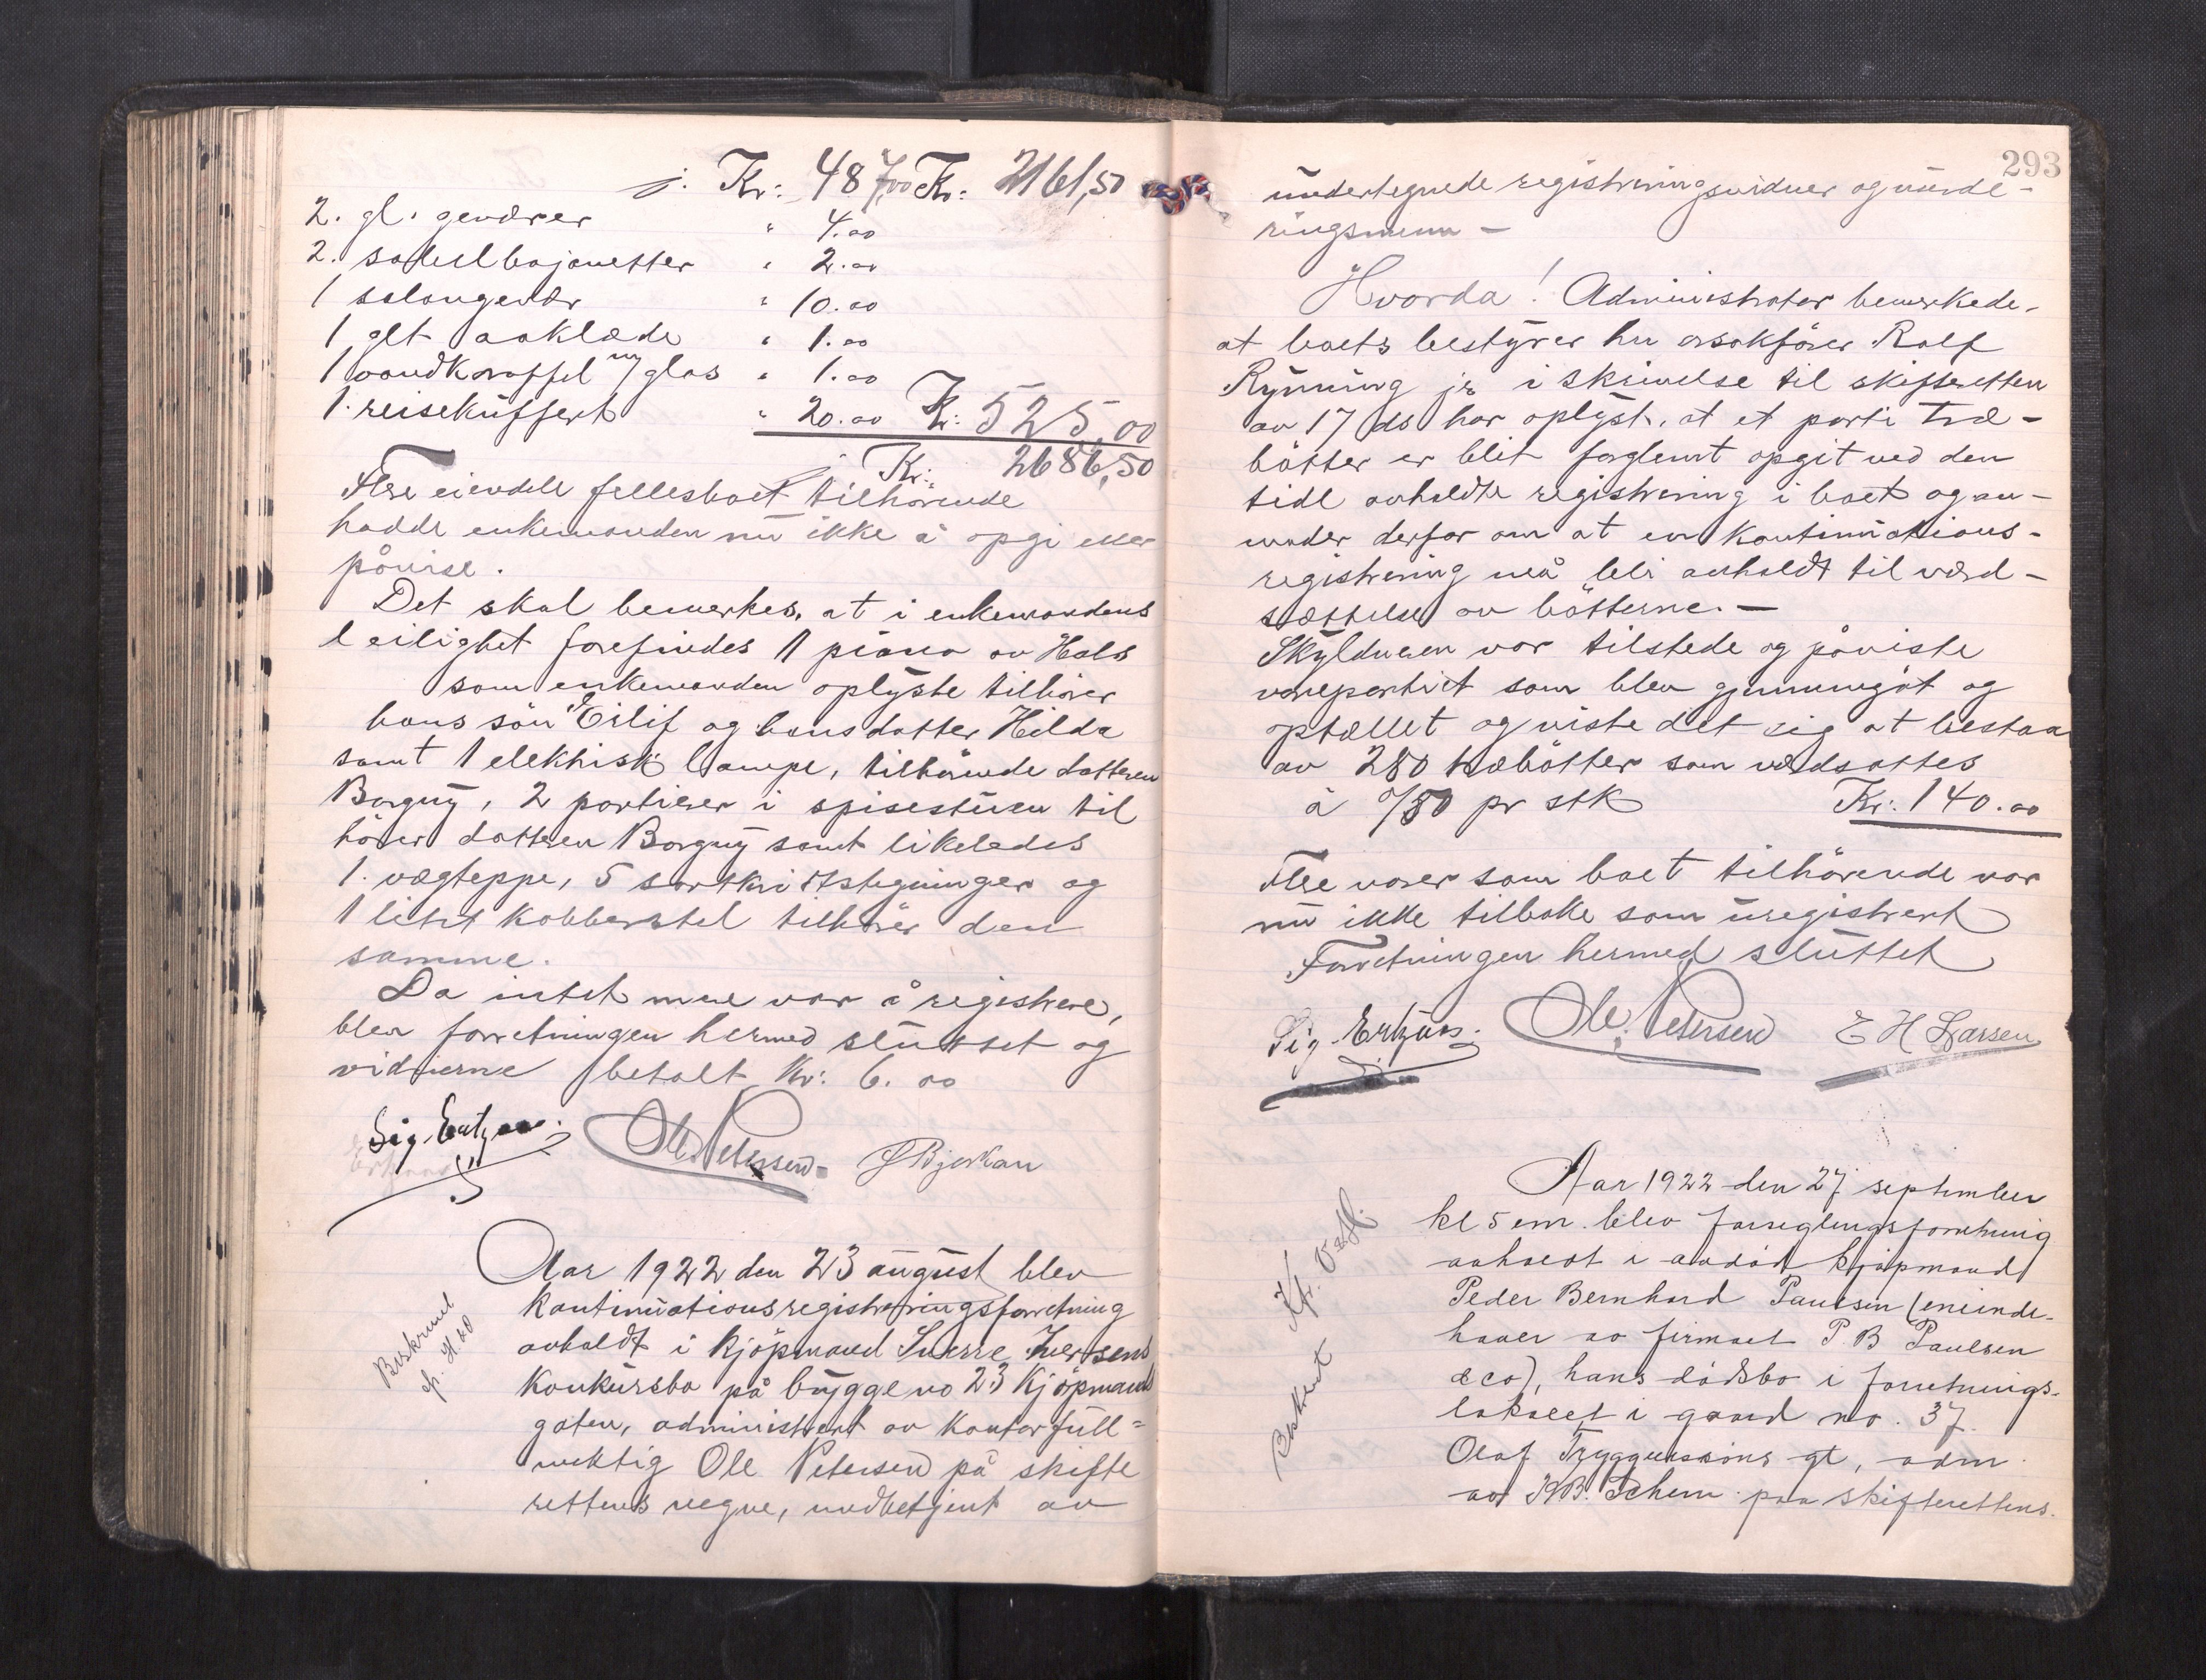 j. Kr: 487,00 Kr: 2161,50
2. gl. geværer " 4.00
2. sabelbajonetter " 2.00
1 salongevær " 10.00
1 glt aaklæde " 1.00
1 vandkaraffel m/glas " 1.00
1. reisekuffert " 20.00 Kr: 525,00
Kr: 2686,50
Flere eiendele fellesboet tilhørende
hadde enkemanden nu ikke å opgi eller
påvise.
Det skal bemerkes, at i enkemandens
leilighet forefindes 1 piano av Hals
som enkemanden oplyste tilhører
hans sön Eilif og hans datter Hilda
samt 1 elektrisk lampe, tilhörende datteren
Borgny, 2 portierer i spisestuen til
hörer datteren Borgny samt likeledes
1. vægteppe, 5 sortkritstegninger og
1 litet kobberstel tilhörer den
samme.
Da intet mere var å registrere,
blev forretningen hermed sluttet og
vidnerne betalt Kr: 6.00
Sig. Ertzaas. Ole Petersen J Bjerkan
Beskrevet
Aar 1922 den 23 august blev
kontinuationsregistreringsforretning
avholdt i kjöpmand Sverre Iversens
konkursbo på brygge no 23 Kjöpmands
gaten, administrert av kontorfuld-
mektig Ole Petersen på skifte
rettens vegne, medbetjent av
293
undertegnede registreringsvidner og vurde-
ringsmenn -
Hvorda! Administrator bemerkede,
at boets bestyrer hr orsakförer Rolf
Rynning jr i skrivelse til skifteretten
av 17 ds har oplyst, at et parti træ-
bötter er blit forglemt opgit ved den
tidl avholdte registrering i boet og an-
moder derfor om at en kontinuations-
registrering må bli avholdt til værd-
sættelse av bötterne. -
Skyldneren var tilstede og påviste
varepartiet som blev gjennemgåt og
optællet og viste det sig at bestaa
av 280 træbötter som værdsattes
à 0/50 pr stk Kr: 140.00
Flere varer som boet tilhörende var
nu ikke tilbake som uregistrert
Forretningen hermed sluttet
Sig. Ertzaas. Ole Petersen E H Larsen
Beskrevet
Aar 1922 den 27 september
kl 5 em. blev forseglingsforretning
avholdt i avdöd kjöpmand
Peder Bernhard Paulsen (eneinde-
haver av firmaet P. B Paulsen
& co), hans dödsbo i forretnings-
lokalet i gaard no. 37
Olaf Tryggvessöns gt, adm.
av Schem paa skifterettens